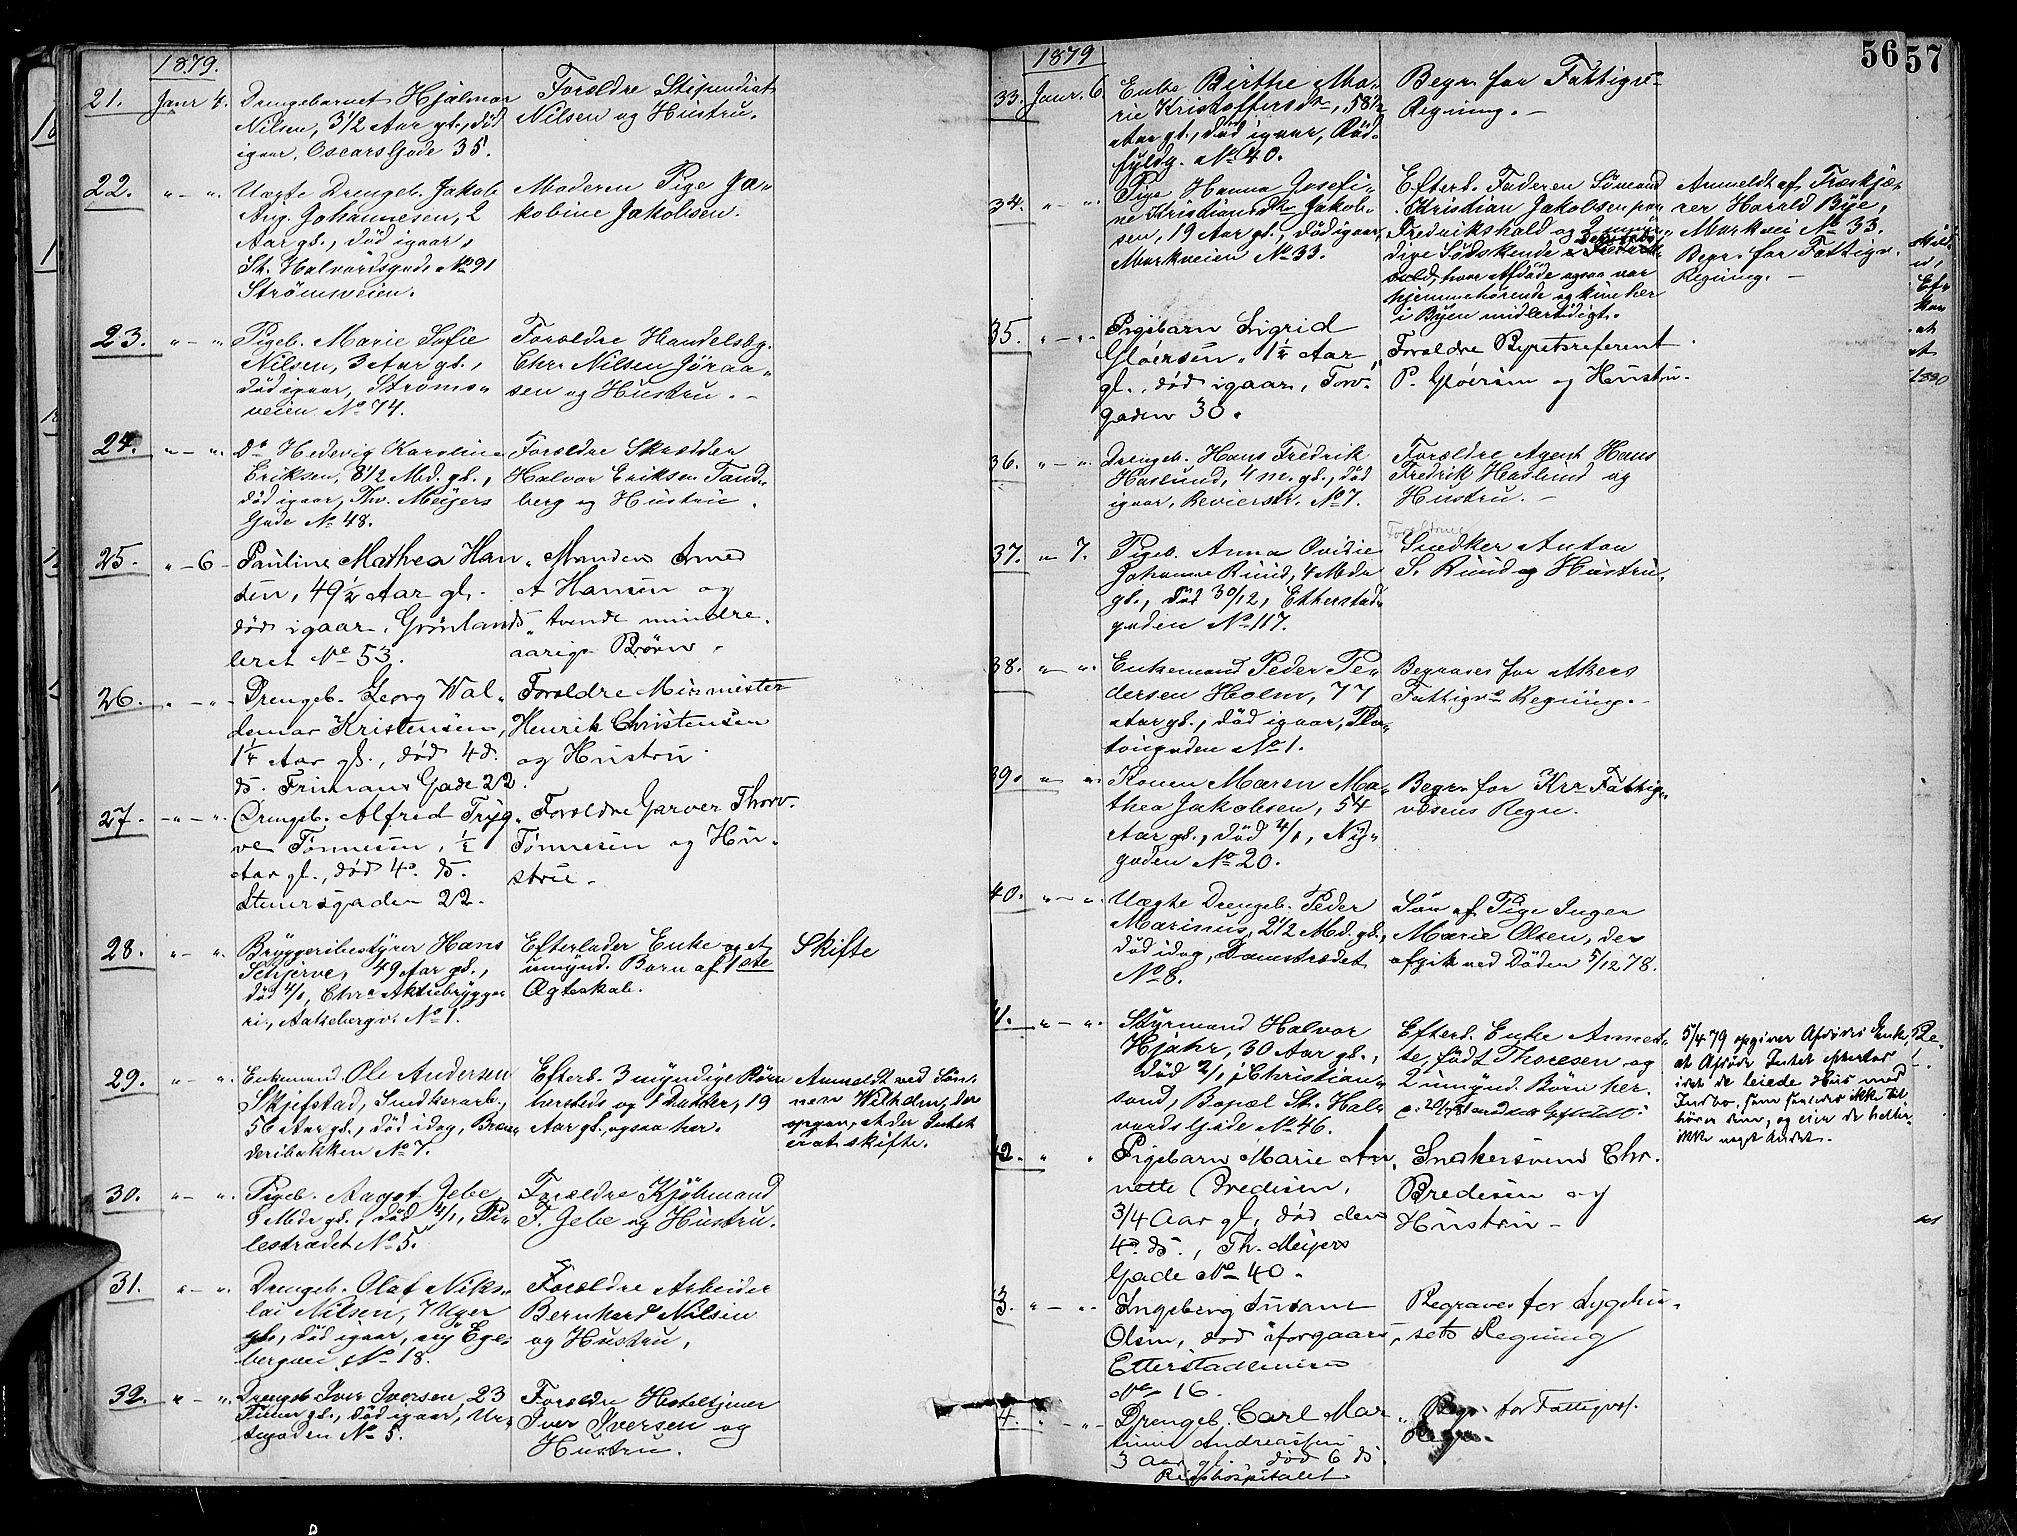 1879.
21. Janr 4. Drengebarnet Hjalmar
Nilsen, 3 1/2 Aar gl., død
igaar, Oscars Gade 35.
Forældre Stipendiat
Nilsen og Hustru.
22. " - " Uægte Drengeb. Jakob
Aug. Johannesen, 2
Aar gl., død igaar,
St. Halvardsgade No 91
Strømsveien.
Moderen Pige Ja-
kobine Jakobsen.
23. " - " Pigeb. Marie Sofie
Nilsen, 3 Aar gl.,
død igaar, Strøms-
veien No 74.
Forældre Handelsbg.
Chr. Nilsen Jøraa-
sen og Hustru. -
24. " - " Do Hedevig Karoline
Eriksen, 8 1/2 Md. gl.,
død igaar, Thv. Meyers
Gade No 48.
Forældre Skrædder
Halvor Eriksen Tand-
berg og Hustru.
25. " - 6 - Pauline Mathea Han-
sen, 49 1/2 Aar gl.
død igaar, Grønlands
leret No 53.
Manden Arned
A Hansen og
tvende mindre-
aarige Børn.
26. " - " Drengeb. Georg Wal-
demar Kristensen,
1 1/4 Aar gl., død 4 d.
ds. Frimans Gade 22.
Forældre Murmester
Henrik Christensen
og Hustru.
27. " - " Drengeb. Alfred Tryg-
ve Tønnesen, 1/2
Aar gl., død 4de ds.
Stenersgaden 22.
Forældre Garver Thorv.
Tønnesen og Hu-
stru.
28. " - " Bryggeribestyrer Hans
Schjerve, 49 Aar gl.,
død 4/1, Chra Aktiebrygge-
ri, Aakebergv. No 1.
Efterlader Enke og et
umynd. Barn af 1ste
Ægteskab.
Skifte
29. " - " Enkemand Ole Andersen
Skjefstad, Snedkerarb.,
56 Aar gl., død idag, Bræn-
deribakken No 7.
Efterl. 3 myndige Børn
hersteds og 1 Datter, 19
Aar gl., ogsaa her.
Anmeldt ved Søn-
nen Wilhelm, der
opgav, at der Intet
er at skifte.
30. " - " Pigeb. Aagot Jebe,
9 Mdr gl., død 4/1, Pi-
lestrædet No 5.
Forældre Kjøbmand
F. Jebe og Hustru.
31. " - " Drengeb. Olaf Niko-
lai Nilsen, 7 Uger
gl., død igaar, ny Ege-
bergveien No 18.
Forældre Arbeider
Bernhard Nilsen
og Hustru.
32. " - " Drengeb. Iver Iversen, 23
Timer gl., død igaar, Ur-
tegaden No 5.
Forældre Hoteltjener
Iver Iversen og
Hustru.
56 57
1879
33. Janr. 6. Enke Birthe Ma-
rie Kristoffersdtr, 58 1/2
Aar gl., død igaar, Rød-
fyldg. No 40.
Begr. for Fattigv.
Regning. -
34. " - " Pige Hanna Josefi-
ne Kristiansdtr Jakob-
sen, 19 Aar gl., død igaar,
Markveien No 33.
Efterl. Faderen Sømand
Christian Jakobsen paa
Fredrikshald og 2 myn-
dige Sødskende
hvor Afdøde ogsaa var
hjemmehørende og kun her
i Byen midlertidigt.
Anmeldt af Træskjæ-
rer Harald Bye,
Markvei No 33.
Begr. for Fattigv.
Regning. -
35. " - " Pigebarn Sigrid
Gløersen, 1 1/2 Aar
gl., død igaar, Torv-
gaden 30.
Forældre Byretsreferent
P. Gløersen og Hustru.
36. " - " Drengeb. Hans Fredrik
Haslund, 4 m. gl., død
igaar, Revierstr. No 7.
Forældre Agent Hans
Fredrik Haslund og
Hustru. -
37. " 7. Pigeb. Anna Ovidie
Johanne Ruud, 4 Mdr
gl., død 30/12, Etterstad-
gaden No 117.
Forældrene
Snedker Anton
S. Ruud og Hustru.
38. " - " Enkemand Peder Pe-
dersen Holm, 77
Aar gl., død igaar, Pla-
tougaden No 1.
Begraves for Akers
Fattigvs Regning. -
39. " " Konen Maren Ma-
thea Jakobsen, 54
Aar gl., død 4/1, Ny-
gaden No 20.
Begr. for Kra Fattig-
væsens Regn.
40. " - " Uægte Drengeb. Peder
Marinus, 2 1/2 Md. gl.,
død idag, Damstrædet
No 8.
Søn af Pige Inger
Marie Olsen, der
afgik ved Døden 5/12 78.
41. " - " Styrmand Halvor
Hjahr, 30 Aar gl.,
død 2/1 i Christian-
sand, Bopæl St. Hal-
vards Gade No 46.
Efterl. Enke Annet-
te, født Thoresen og
2 umynd. Børn her.
5/4 79 opgiver Afdødes Enke,
at Afdøde Intet efterlod
idet de leiede Hus med
Indbo, som saaledes ikke til-
hører dem, og eier de heller
ikke noget Andet.
42. " " Pigebarn Marie An-
nette Bredesen,
3/4 Aar gl., død den
4de ds., Th. Meyers
Gade No 40.
Snekersvend Chr.
Bredesen og
Hustru -
3. " - " Ingeborg Susane
Olsen, død iforgaars,
Etterstadveien
No 16.
Begraves for Sygehu-
sets Regning
4. " - " Drengeb. Carl Mar-
tinius Andreassen
3 Aar gl. død 6 ds
Rigshospitalet
Begr. for Fattigvs.
Regn.